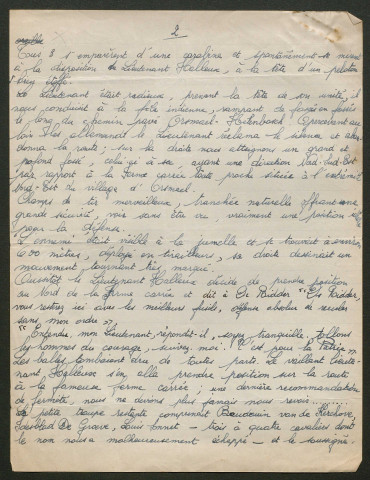 2
Tous 3 s'emparèrent d'une carabine et spontanément se mirent
à la disposition du Lieutenant Halleux, à la tête d'un peloton
Le Lieutenant était radieux prenant la tête de son unité, il
nous conduisit à la file indienne, rampant de fossé en fossé
le long du chemin pavé Orsmael - Apercevant au
loin les allemands le Lieutenant réclama le silence et aban-
donna la route; sur la droite nous atteignons un grand et
profond fossé, celui-çi à sec, ayant une direction Nord-Sud-Est
par rapport à la Ferme carrée toute proche située à l'extrémité
Sud-Est du village d'Orsmael.
Champs de tir merveilleux, tranchée naturelle offrant une
grande sécurité, mais sans être au vraiment une position
pour la défense.
L'ennemi était visible à la jumelle et se trouvait à environ
600 mètres, déployé en tirailleurs, sa droite dessinait un
mouvement tournant très marqué.
Aussitôt le Lieutenant Halleux décide de prendre position
au Nord de la Ferme carrée et dit à De Ridder "De Ridder,
vous resterez ici avec les meilleurs fusils, défense absolue de reculer
sans mon ordre".
"Entendu, mon Lieutenant, répondit-il, soyez tranquille. Allons
les hommes du courage, suivez-moi: C'est pour la Patrie".
Les balles tombaient dru de toutes parts. Le vaillant Lieute-
nant Halleux s'en alla prendre position sur la route
à la fameuse ferme carrée; une dernière recommandation
de fermeté, nous ne devions plus jamais nous revoir.
La petite troupe restante comprenait Baudouin van de Kerchove,
De Grave, Louis - trois à quatre cavaliers dont
le nom nous a malheureusement échappé - et le soussigné.